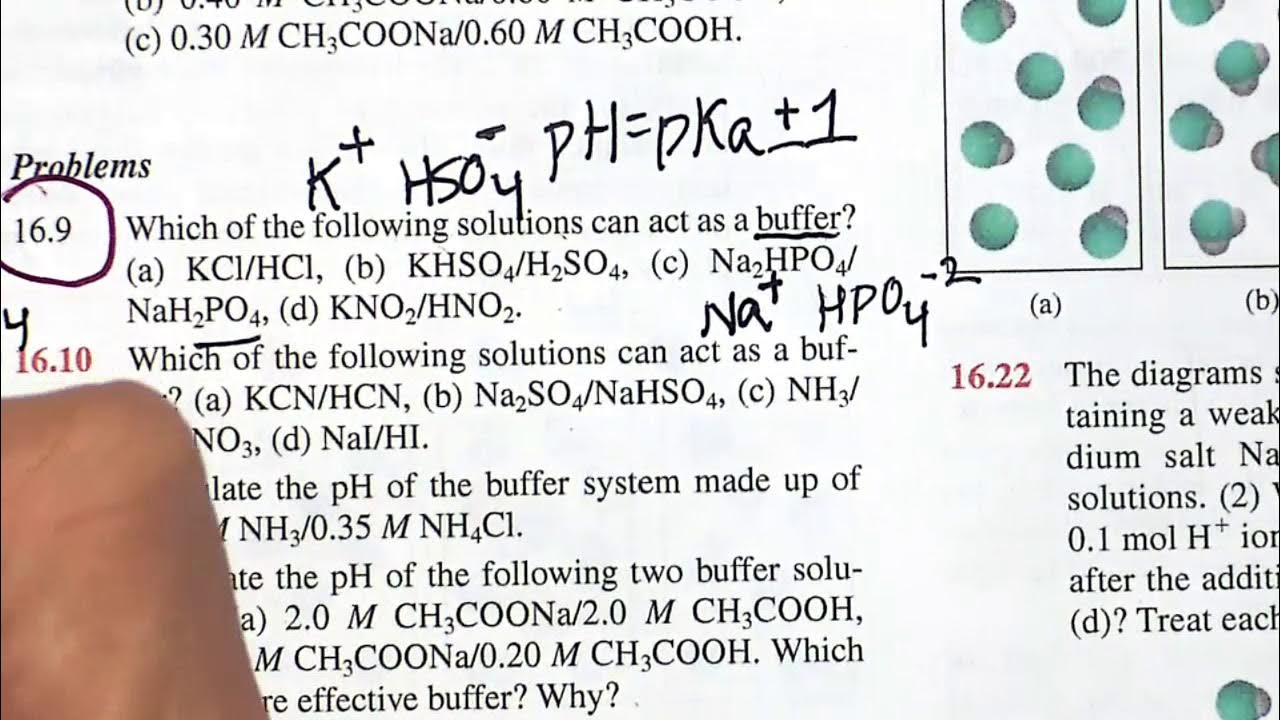 (c) 0.30 M CH₃COONa/0.60 M CH₃COOH.
pH=pKa±1
K⁺ HSO₄⁻
Problems
16.9 Which of the following solutions can act as a buffer?
(a) KCl/HCl, (b) KHSO₄/H₂SO₄, (c) Na₂HPO₄/
NaH₂PO₄, (d) KNO₂/HNO₂.
Na⁺ HPO₄⁻²
y
16.10 Which of the following solutions can act as a buf-
? (a) KCN/HCN, (b) Na₂SO₄/NaHSO₄, (c) NH₃/
NO₃, (d) NaI/HI.
late the pH of the buffer system made up of
M NH₃/0.35 M NH₄Cl.
ate the pH of the following two buffer solu-
a) 2.0 M CH₃COONa/2.0 M CH₃COOH,
M CH₃COONa/0.20 M CH₃COOH. Which
re effective buffer? Why?
(a) (b)
16.22 The diagrams
taining a weak
dium salt Na
solutions. (2)
0.1 mol H⁺ ion
after the additi
(d)? Treat each